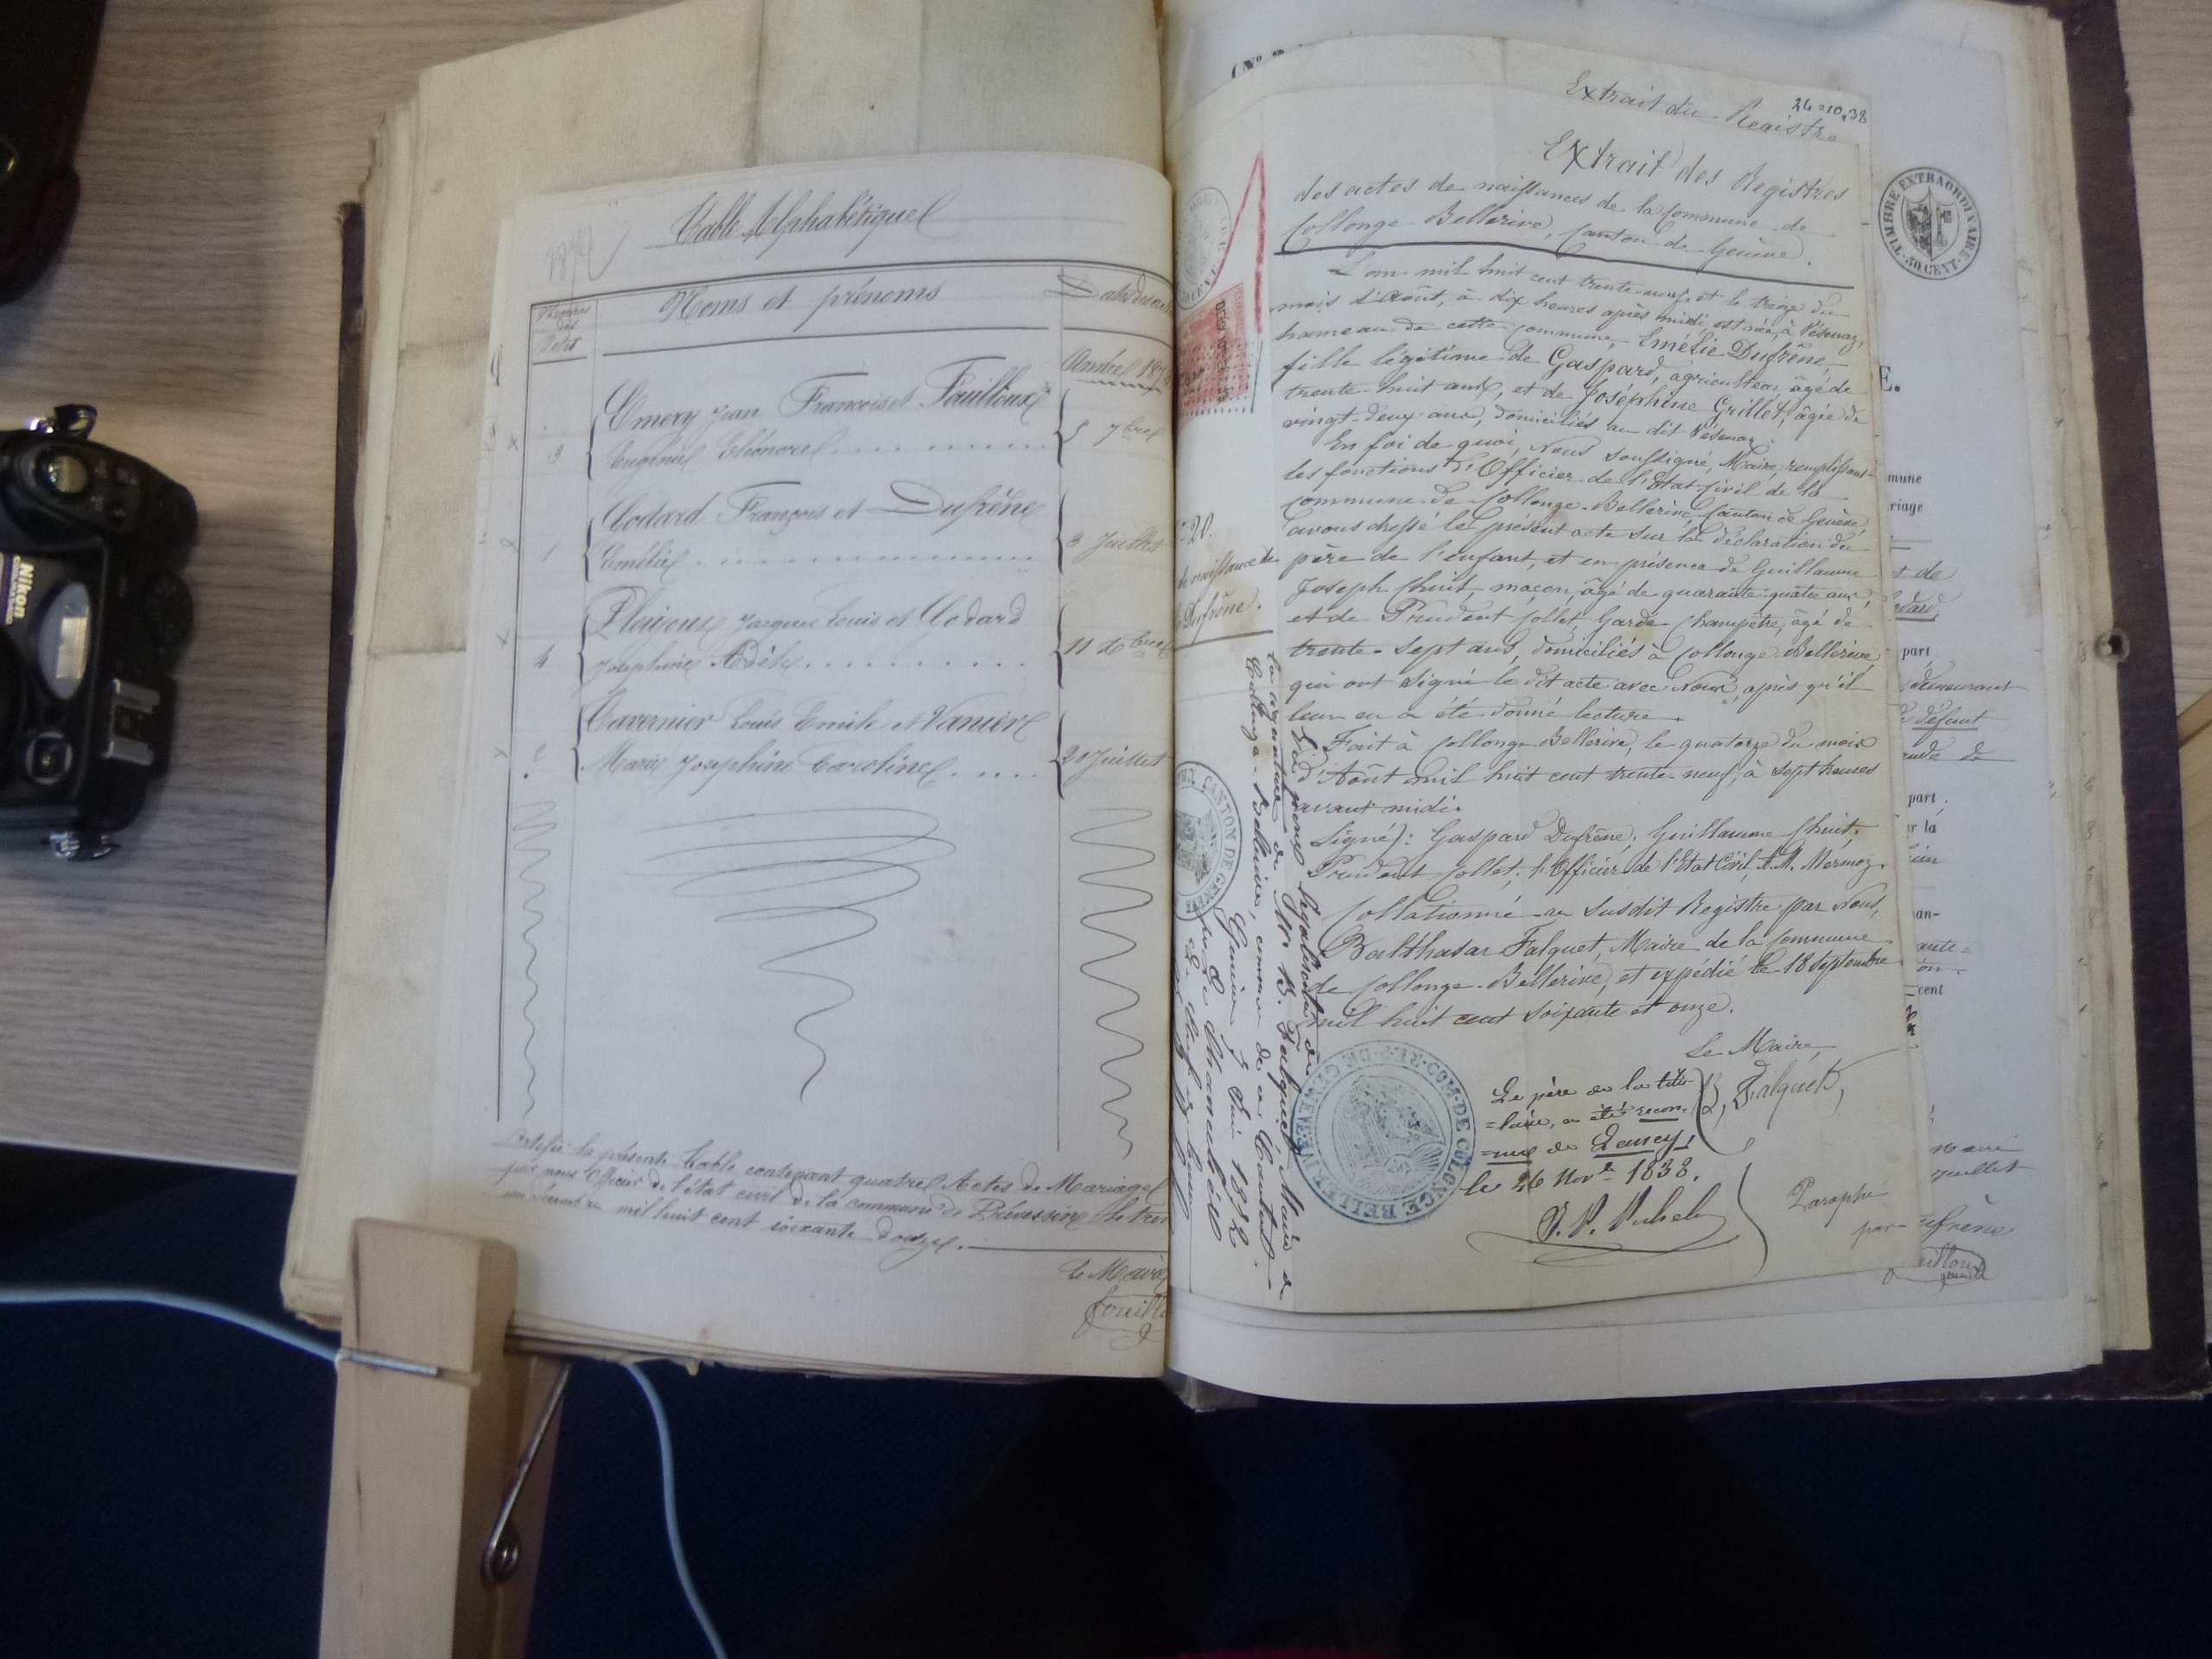 Table Alphabétique
1872
Numéros
des
Actes
Noms et prénoms
Année 187
Emery Jean François et Fouilloux
3
Eugénie Eléonore
5 7bre
Godard François et Dufrêne
1
Emélie
3 Juillet
Jacques Louis et Godard
4
Joséphine Adèle
11 Xbre
Tavernier Louis Emile et Vanière
2
Marie Joséphine Caroline
20 Juillet
Certifié la présente table contenant quatre Actes de Mariage
par nous Officier de l'état civil de la commune de Prévessin le tren
un décembre mil huit cent soixante douze.
Le Maire
Extrait du Registre
26=10.38
Extrait des Registres
des actes de naissances de la Commune de
Collonge-Bellerive, Canton de Genève.
L'an mil huit cent trente-neuf et le treize du
mois d'Août, à dix heures après midi, est née, à Vésenaz,
hameau de cette commune, Emélie Dufrêne,
fille légitime de Gaspard, agriculteur, âgé de
trente-huit ans, et de Joséphine Grillet, âgée de
vingt-deux ans, domiciliés au dit Vésenaz.
En foi de quoi, Nous soussigné, Maire, remplissant
les fonctions d'Officier de l'Etat Civil de la
commune de Collonge-Bellerive, Canton de Genève,
avons dressé le présent acte sur la déclaration du
père de l'enfant, et en présence de Guillaume
Joseph Chuit, maçon, âgé de quarante-quatre ans,
et de Prudent Collet, Garde-Champêtre, âgé de
trente-sept ans, domiciliés à Collonge-Bellerive,
qui ont signé le dit acte avec Nous, après qu'il
leur en a été donné lecture.
Fait à Collonge-Bellerive, le quatorze du mois
d'Août mil huit cent trente neuf, à sept heures
avant midi.
Signé): Gaspard Dufrêne; Guillaume Chuit;
Prudent Collet; l'Officier de l'Etat Civil, A.M. Mermoz.
Collationné au susdit Registre par Nous,
Balthasar Falquet, Maire de la Commune
de Collonge-Bellerive, et expédié le 18 Septembre
mil huit cent soixante et onze.
Le Maire,
B. Falquet,
Le père de la titu-
=laire, a été recon-
=nu de Lancy,
le 26 Nov. 1838.
Paraphe
par
=20.
de naissance de
Dufrêne.
Vu pour légalisation de
la signature de Mr B. Falquet, Maire de
Collonge-Bellerive, commune de ce Canton.
Genève, 7 Juin 1872
TIMBRE EXTRAORDINAIRE
30 CENT.
CANTON DE GENEVE
REP. DE GENEVE COM. DE COLONGE BELLERIVE
E.
mune
riage
t de
part,
demeurant
défunt
part,
r la
an-
cent
juillet
ufrène
Nikon